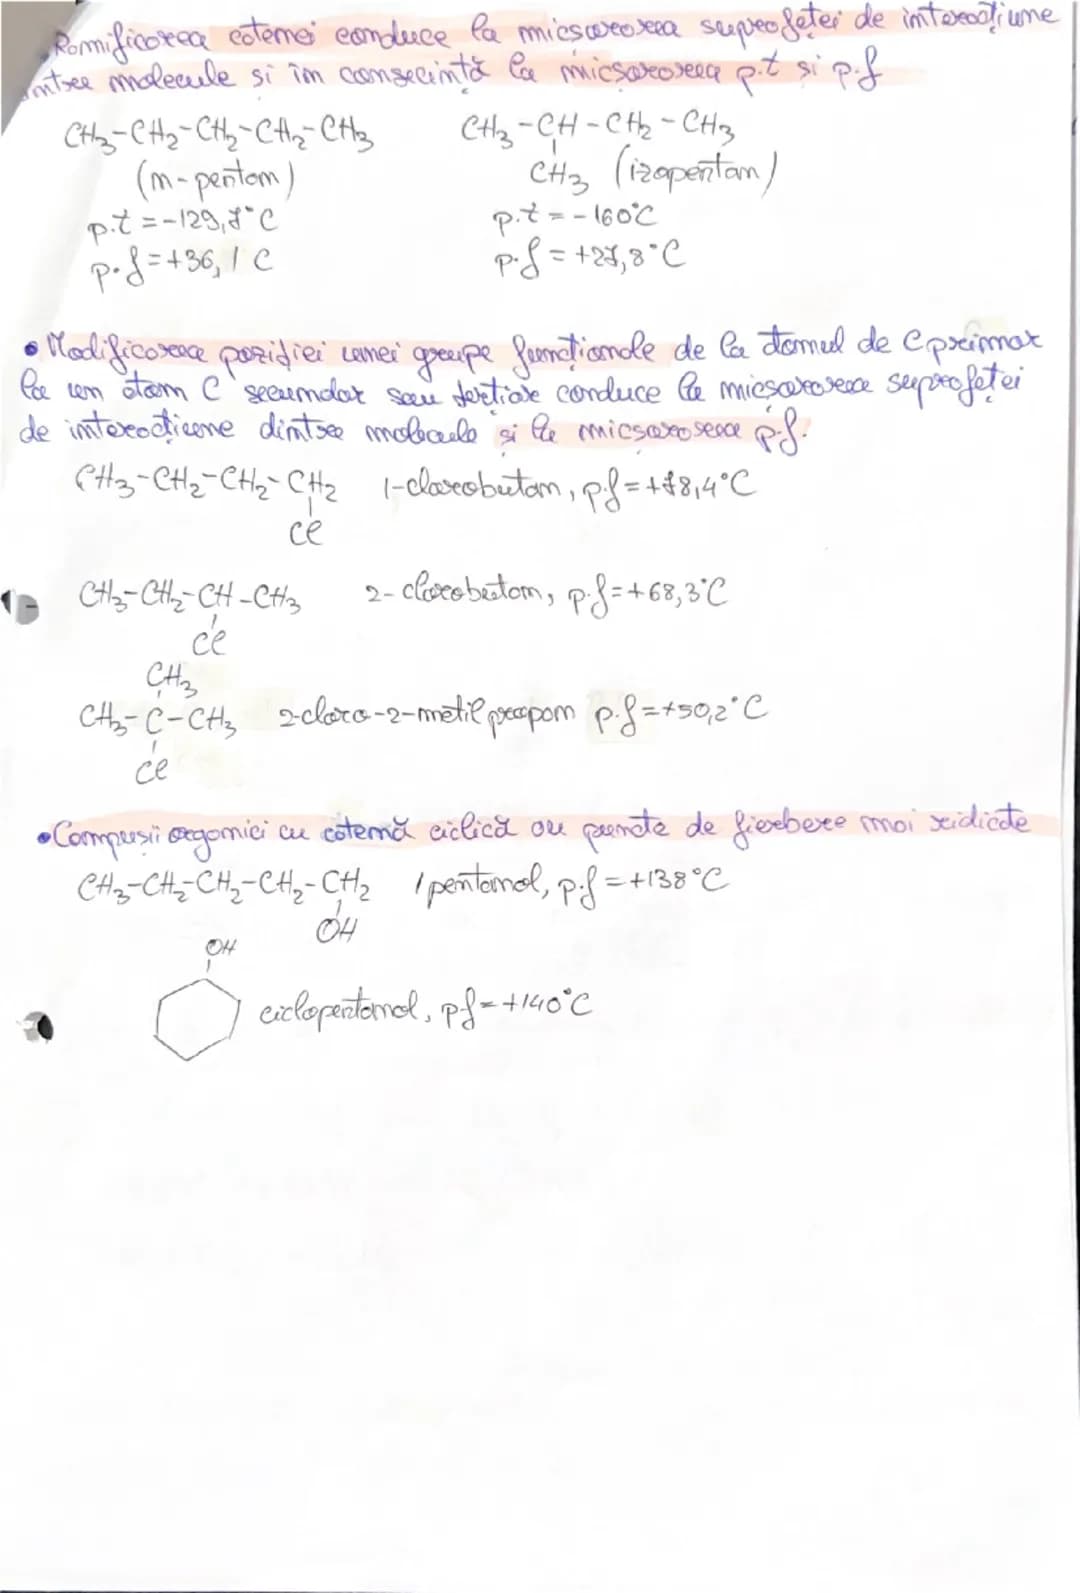 •Ramificarea catenei conduce la micsorarea suprafeței de interacțiune
intre molecule si în consecință la micsorarea p.t si p.f
CH3-CH2-CH2-CH2-CH3 CH3-CH-CH2-CH3
(n-pentan) CH3 (izopentan)
p.t=-129,7°C p.t=-160°C
p.f=+36,1 C p.f=+27,8°C
•Modificarea poziției unei grupe funcționale de la atomul de C primar
la un atom C secundar sau terțiar conduce la micșorarea suprafeței
de interacțiune dintre molecule și la micsorarea p.f.
CH3-CH2-CH2-CH2 1-clorobutan, p.f=+78,4°C
Cl
CH3-CH2-CH-CH3 2-clorobutan, p.f=+68,3°C
Cl
CH3
CH3-C-CH3 2-cloro-2-metil propan p.f=+50,2°C
Cl
•Compusii organici cu catenă ciclică au puncte de fierbere mai ridicate
CH3-CH2-CH2-CH2-CH2 1pentanol, p.f=+138°C
OH
OH
ciclopentanol, p.f=+140°C